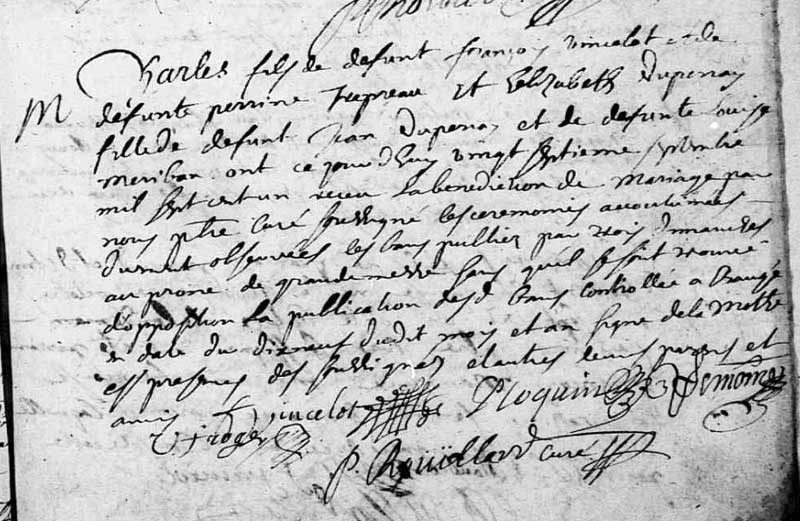 M Charles fils de defunt françois vincelot et de
defunte perrine Et Elizabeth Dupenay
fille de defunt Jean Dupenay et de defunte Louise
meriban ont ce jourdhuy vingt septieme septembre
mil sept cent un receu la benediction de mariage par
nous ptre curé soussigné les ceremonies accoutumées
dument observées les bans publiez par trois dimanches
au prone de grande messe sans quil se soit trouvé
d'opposition la publication desd bans controllée a Baugé
en date du dudit mois et an signe de la Mothe
es presences des soussignez et autres leurs parens et
amis
vincelot Ploquin
J roger
P Roüillard curé